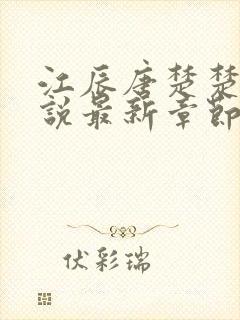 江辰唐楚楚
說最新章節
伏彩瑞